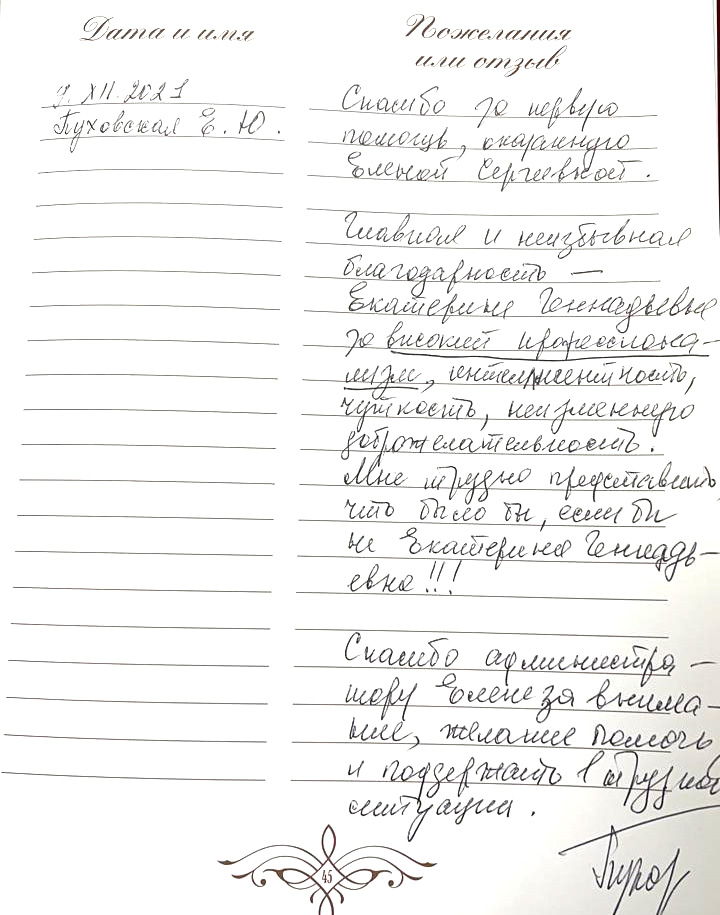 Дата и имя
Пожелания
или отзыв
7. XII. 2021
Пуховская Е. Ю.
Спасибо за первую
помощь, оказанную
Еленой Сергеевной.
Главная и неизбывная
благодарность —
Екатерине Геннадьевне
за высокий профессиона-
лизм, интеллигентность,
чуткость, неизменную
доброжелательность.
Мне трудно представить
что было бы, если бы
не Екатерина Геннадь-
евна!!!
Спасибо администра-
тору Елене за внима-
ние, желание помочь
и поддержать в трудной
ситуации.
45